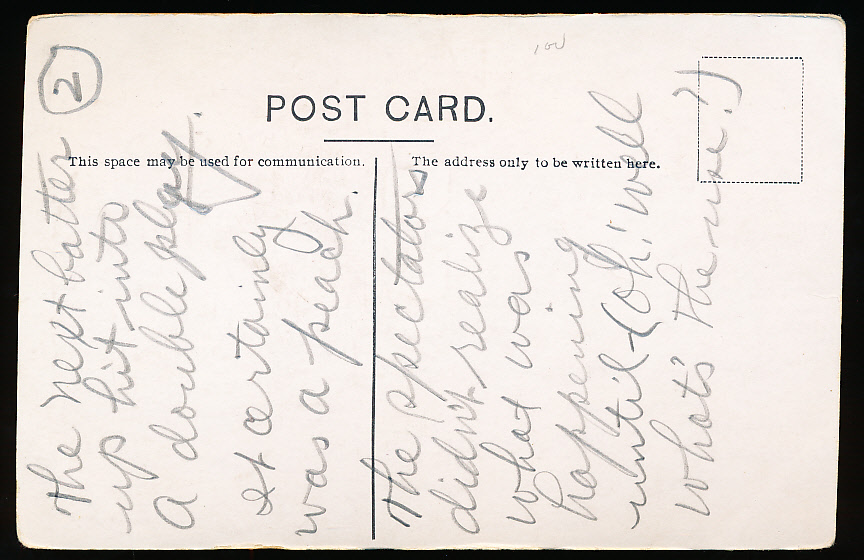 100
POST CARD.
This space may be used for communication.
The address only to be written here.
2
The next batter
up hit into
a double play.
It certainly
was a peach.
The spectators
didn't realize
what was
happening
until - (Oh! well
what's the use!)